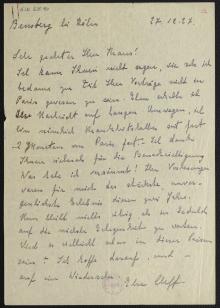 Bensberg bei Köln 27.12.27.
Sehr geehrter Herr Kraus!
Ich kann Ihnen nicht sagen, wie sehr ich
bedaure zur Zeit Ihrer Vorträge nicht in
Paris gewesen zu sein. Ihre
Nachricht auf langen Umwegen, ich
bin nämlich fast
2 Monaten von Paris fort. Ich danke
Ihnen vielmals für die Benachrichtigung
Was habe ich versäumt! Ihre Vorlesungen
waren für mich das stärkste unver-
gesslichste Erlebnis dieser zwei Jahre.
Nun bleibt nichts übrig als in Geduld
auf die nächste Gelegenheit zu warten.
Wird es vielleicht schon in diesem
sein? Ich hoffe darauf, und
auf ein Wiedersehen.